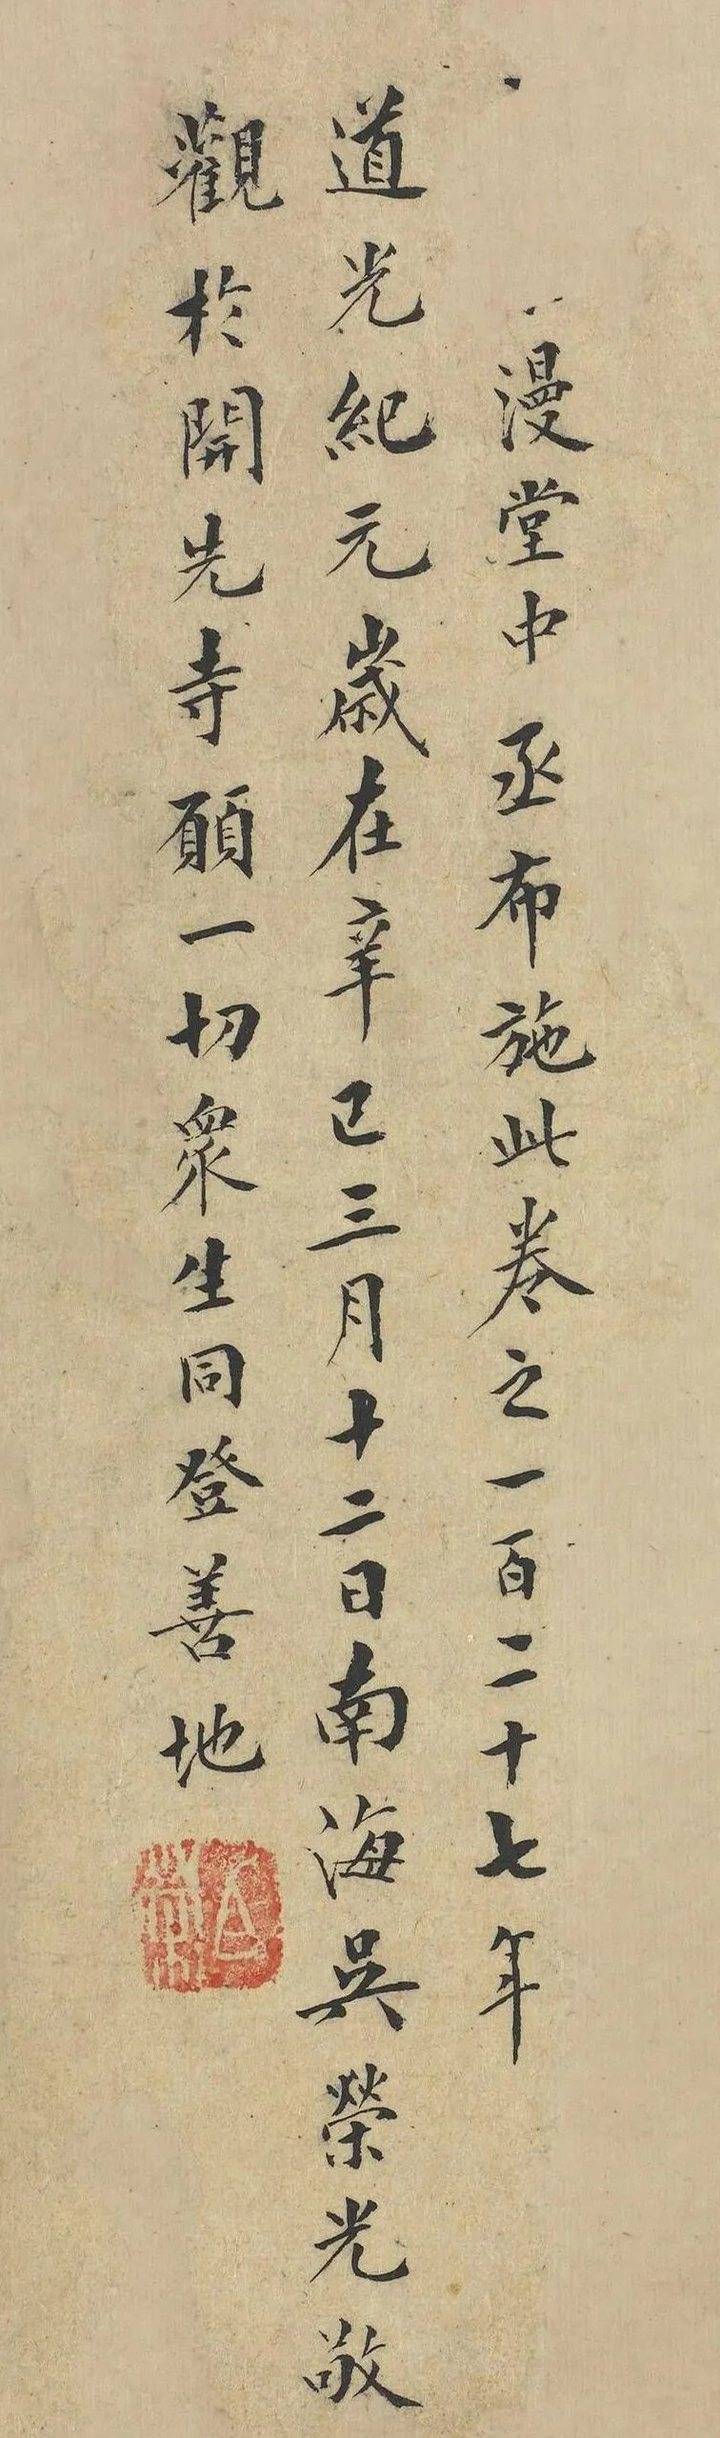 漫堂中丞布施此卷之一百二十七年
道光紀元歲在辛巳三月十二日南海吳榮光敬
觀於開先寺願一切眾生同登善地